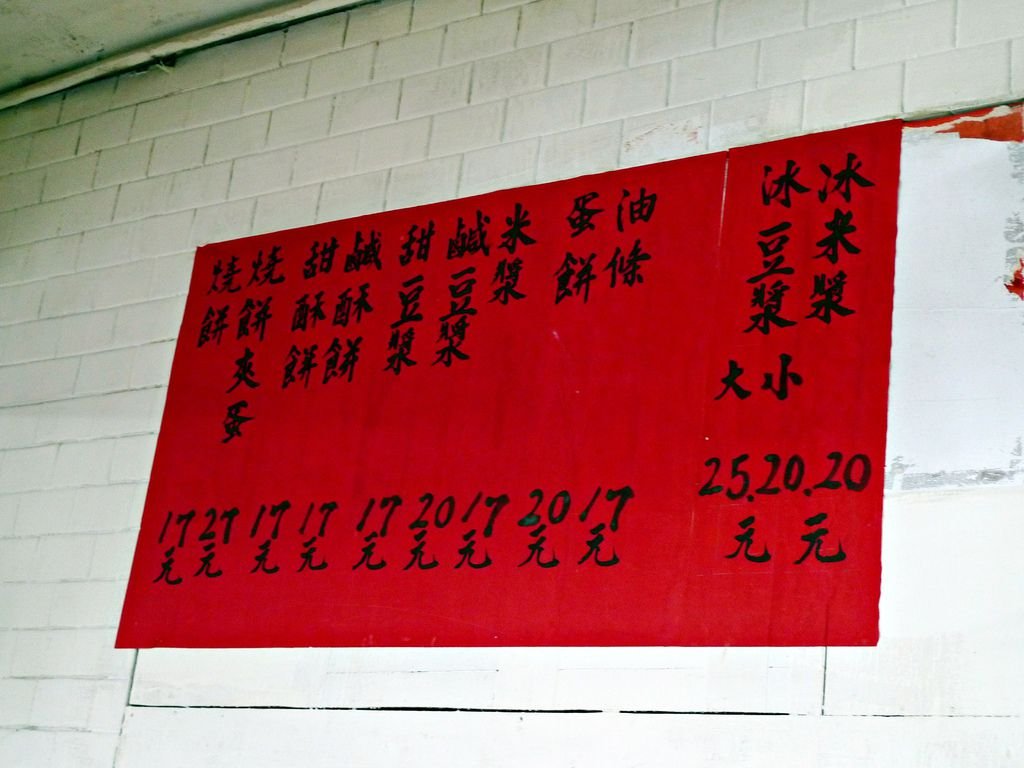 冰米漿 20元
冰豆漿 大小 25.20.元
油條 17元
蛋餅 20元
米漿 17元
鹹豆漿 20元
甜豆漿 17元
鹹酥餅 17元
甜酥餅 17元
燒餅夾蛋 27元
燒餅 17元